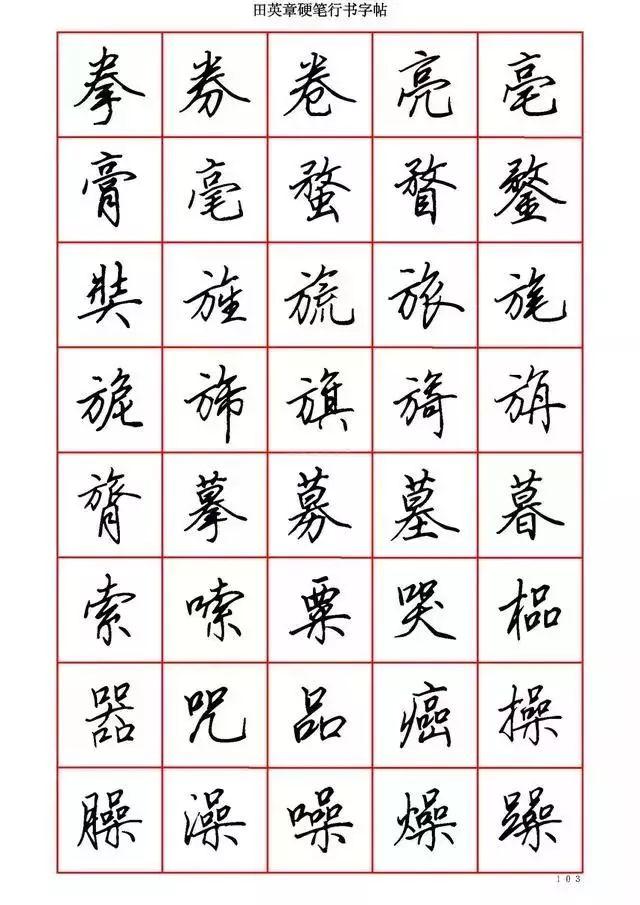 田英章硬笔行书字帖
拳券卷亮亳
膏毫蝥瞀鍪
奘旌旒旅旄
旎旆旗旖旃
膂摹募墓暮
索嗦粟哭榀
器咒品癌操
臊澡噪燥躁
103